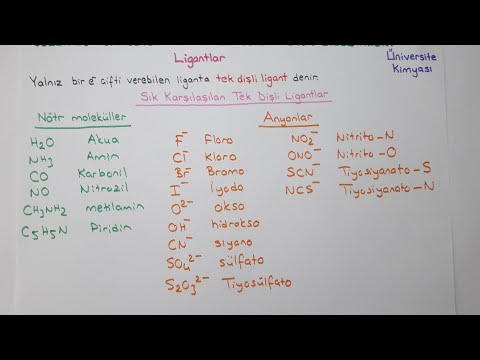 Ligantlar
Üniversite
Kimyası
Yalnız bir e⁻ çifti verebilen liganta tek dişli ligant denir.
Sık Karşılaşılan Tek Dişli Ligantlar
Nötr moleküller
H₂O Akua
NH₃ Amin
CO Karbonil
NO Nitrozil
CH₃NH₂ metilamin
C₅H₅N Piridin
Anyonlar
F⁻ Floro
Cl⁻ Kloro
Br⁻ Bromo
I⁻ İyodo
O²⁻ okso
OH⁻ hidrokso
CN⁻ siyano
SO₄²⁻ sülfato
S₂O₃²⁻ Tiyosülfato
NO₂⁻ Nitrito-N
ONO⁻ Nitrito-O
SCN⁻ Tiyosiyanato-S
NCS⁻ Tiyosiyanato-N